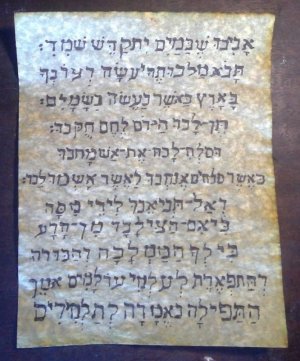 אבינו שבשמים יתקדש שמך:
תבא מלכותך יעשה רצונך
בארץ כאשר נעשה בשמים:
תן-לנו היום לחם חקנו:
וסלח-לנו את-אשמתנו
כאשר סלחים אנחנו לאשר אשמו לנו:
ואל-תביאנו לידי מסה
כי אם-הצילנו מן-הרע
כי לך הממלכה והגבורה
והתפארת לעולמי עולמים אמן
התפילה